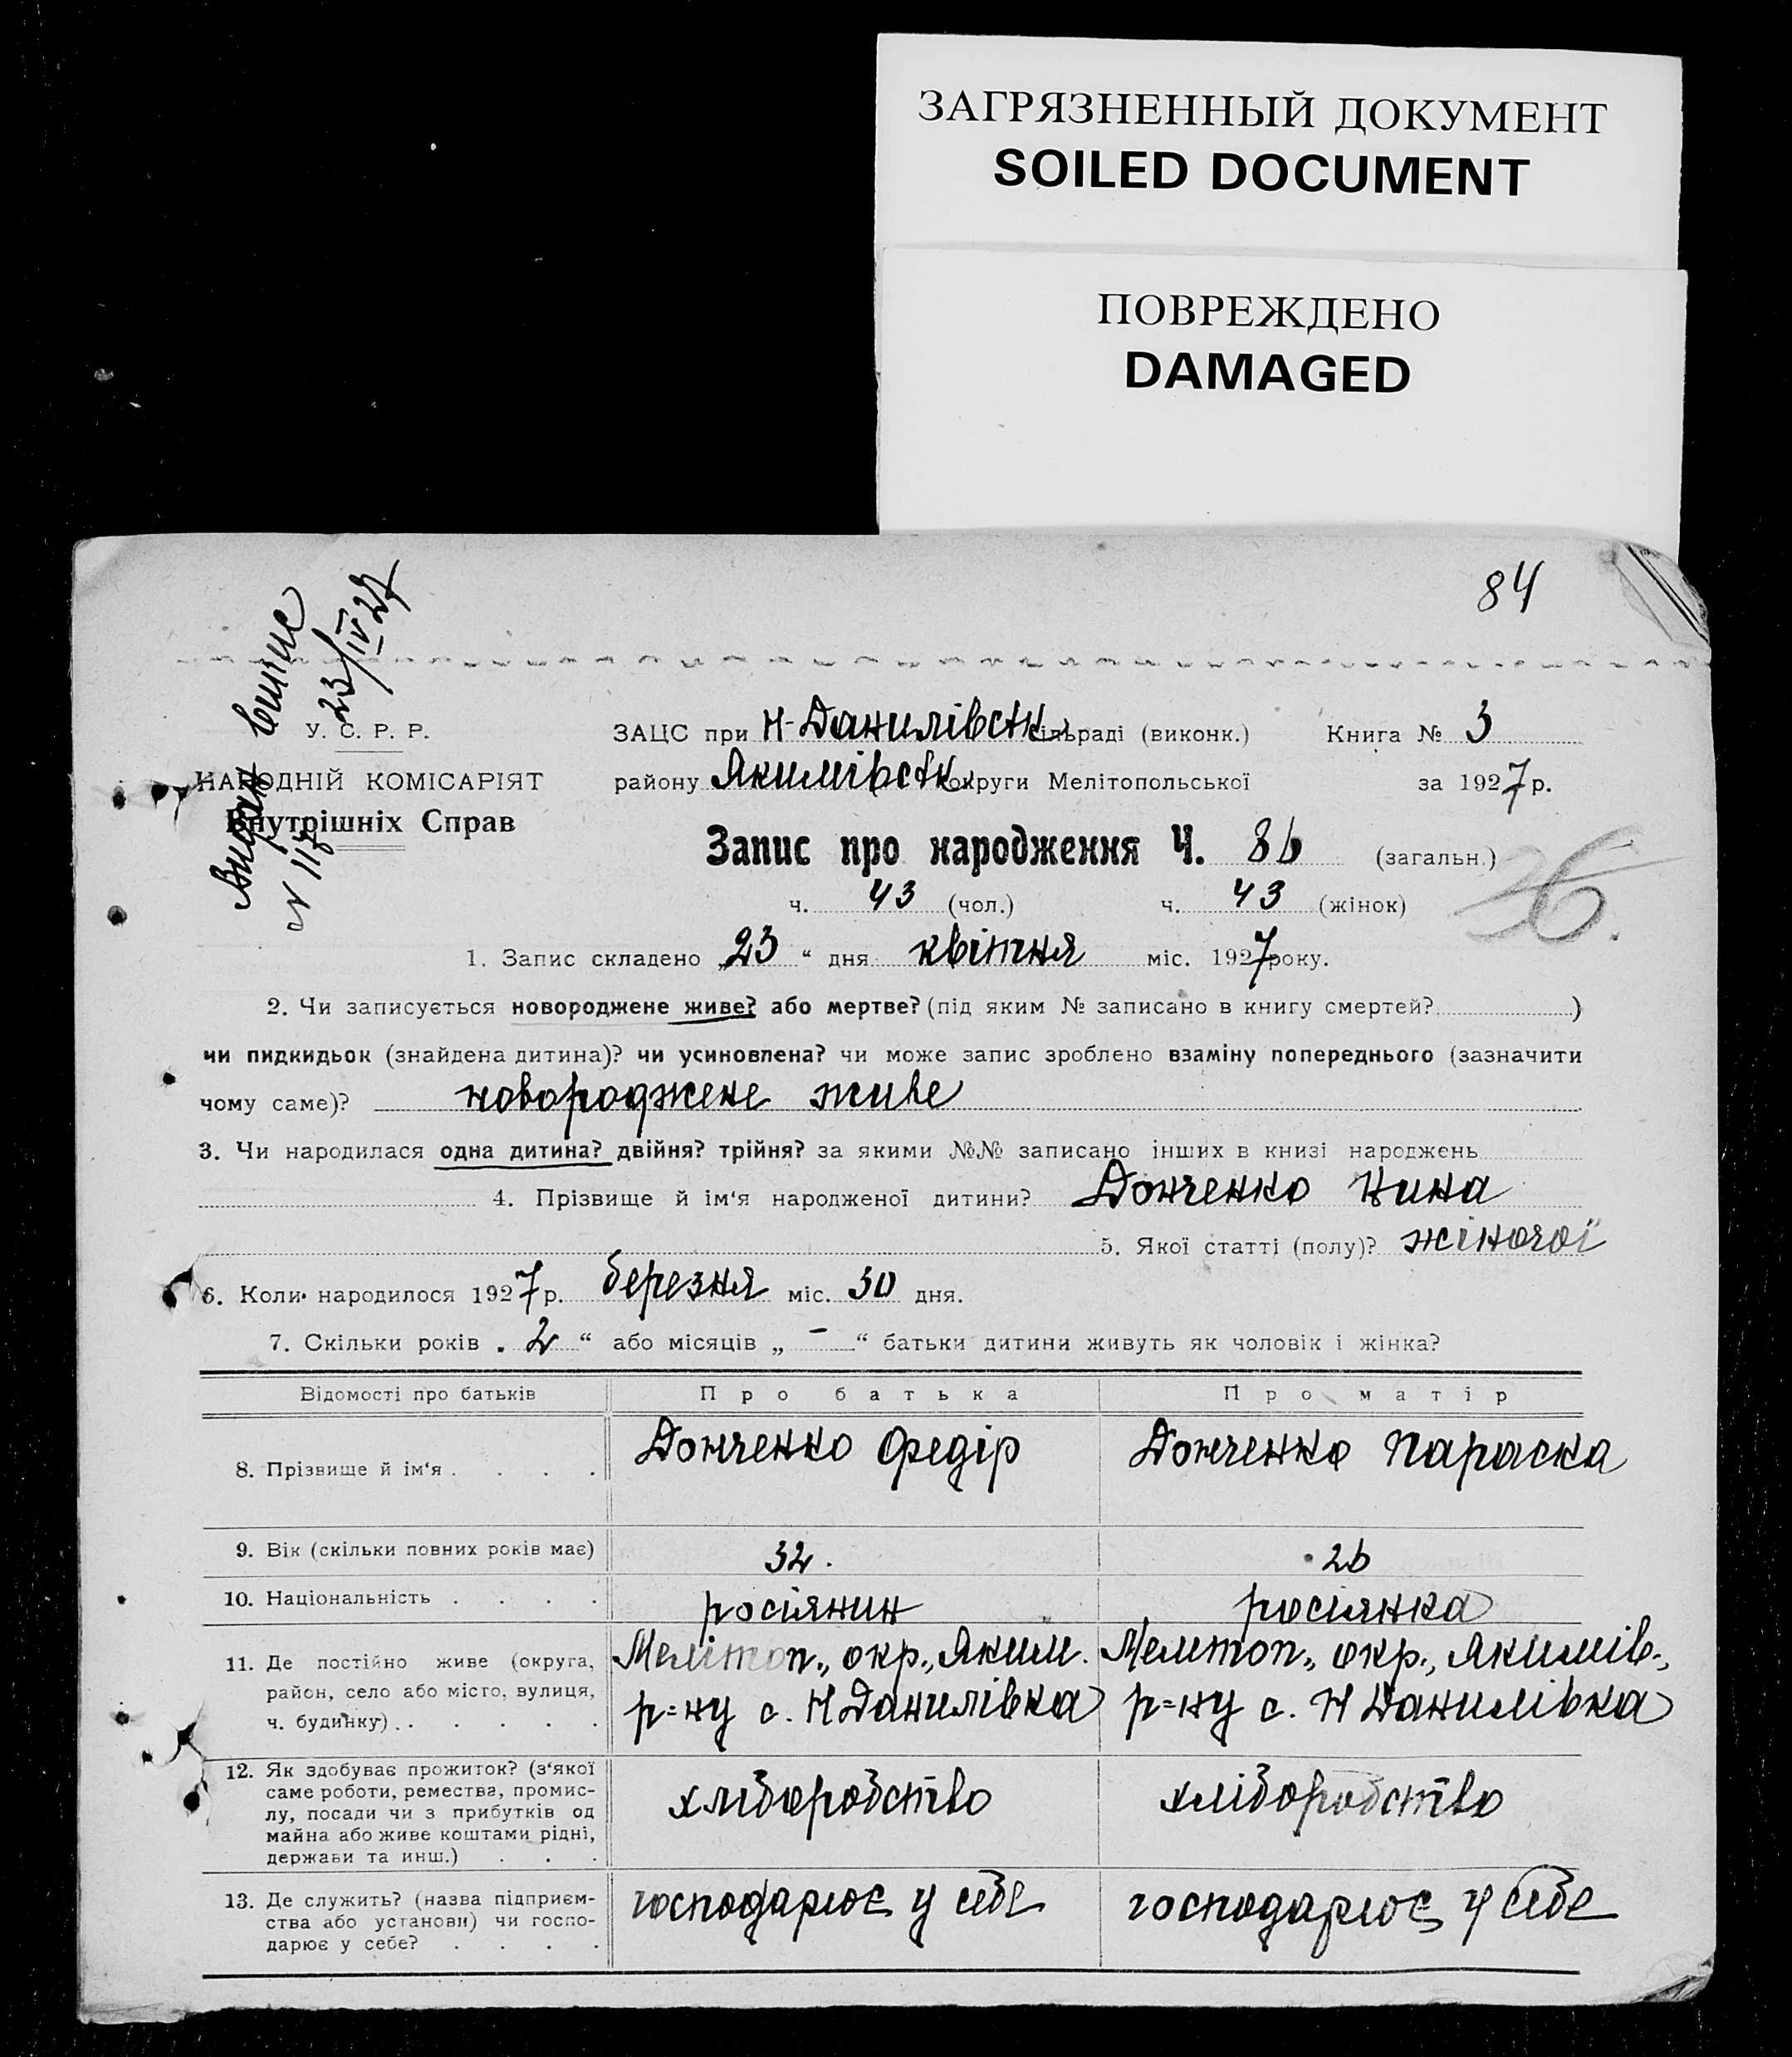 ЗАГРЯЗНЕННЫЙ ДОКУМЕНТ
SOILED DOCUMENT
ПОВРЕЖДЕНО
DAMAGED
84
Видан витис
N 117 23/IV 27
У. С. Р. Р.
НАРОДНІЙ КОМІСАРІЯТ
Внутрішніх Справ
ЗАЦС при Н-Данилівськ. сільраді (виконк.) Книга № 3
району Якимівськ. округи Мелітопольської за 1927 р.
Запис про народження Ч. 86 (загальн.)
ч. 43 (чол.) ч. 43 (жінок)
26.
1. Запис складено „23“ дня квітня міс. 1927 року.
2. Чи записується новороджене живе? або мертве? (під яким № записано в книгу смертей? )
чи пидкидьок (знайдена дитина)? чи усиновлена? чи може запис зроблено взаміну попереднього (зазначити
чому саме)? новороджене живе
3. Чи народилася одна дитина? двійня? трійня? за якими №№ записано інших в книзі народжень
4. Прізвище й ім‘я народженої дитини? Донченко Нина
5. Якої статті (полу)? жіночої
6. Коли народилося 1927 р. березня міс. 30 дня.
7. Скільки років „2“ або місяців „-“ батьки дитини живуть як чоловік і жінка?
Відомості про батьків Про батька Про матір
8. Прізвище й ім‘я . . . . Донченко Федір Донченко Параска
9. Вік (скільки повних років має) 32. 26
10. Національність . . . . росіянин росіянка
11. Де постійно живе (округа,
район, село або місто, вулиця,
ч. будинку) . . . . . .
Мелітоп., окр., Яким.
р=ну с. Н Данилівка
Мелитоп., окр., Якимів.,
р=ну с. Н Данилівка
12. Як здобуває прожиток? (з‘якої
саме роботи, ремества, промис-
лу, посади чи з прибутків од
майна або живе коштами рідні,
держави та инш.) . . .
хліборобство
хліборобство
13. Де служить? (назва підприєм-
ства або установи) чи госпо-
дарює у себе? . . . .
господарює у себе
господарює у себе